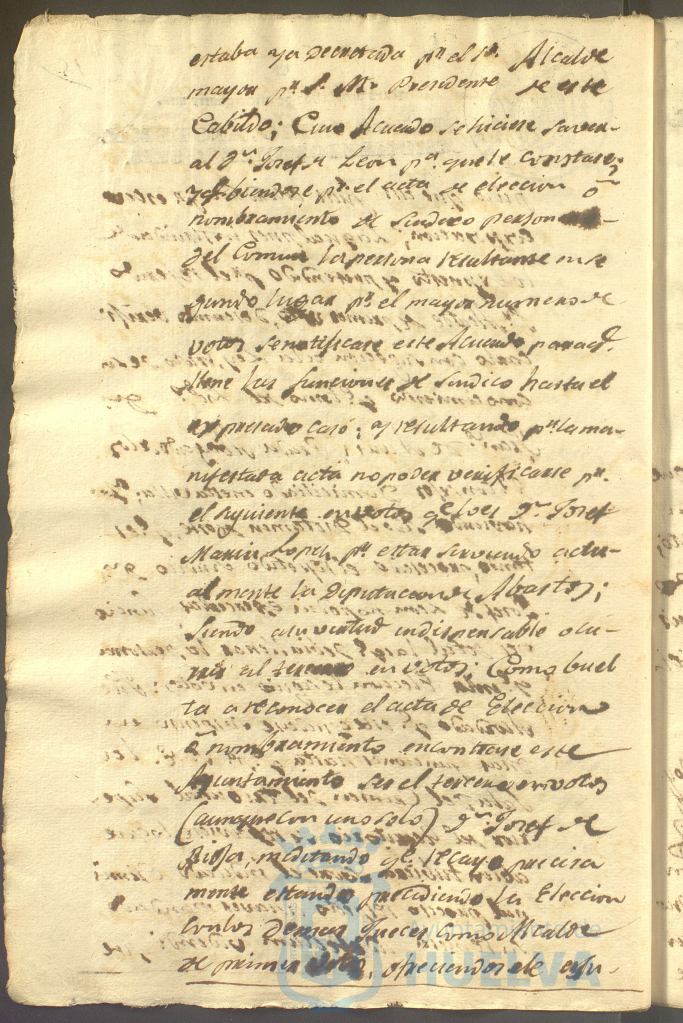 estaba ya decretada pr el Sr. Alcalde
mayor pr S. M. Presidente de este
Cabildo; Cuio Acuerdo se hiciese saver
al Dn. Josef de Leon pa. que le constase,
y debiendose pr. el acta de eleccion ó
nombramiento de Sindico person
del Comun la persona resultante en se
gundo lugar pr. el mayor numero de
votos se notificase este Acuerdo para qe.
llene las funciones de Sindico hasta el
expresado caso; y resultando pr. la ma-
nifestada acta no poder verificarse pr.
el siguiente en votos qe. lo es Dn. Josef
Marin Lopez pr. estar sirviendo actu-
almente la Diputacion de Abastos;
Siendo a su virtud indispensable ocu-
rrir al tercero en votos: Como buel
ta a reconocer el acta de Eleccion
ó nombramiento encontrase este
Ayuntamiento ser el tercero en votos
(aunque con uno solo) Dn. Josef de
meditando qe. recayo precisa
mente estando presidiendo la Eleccion
con los Demas Jueces como Alcalde
de primer voto, ofreciendosele
HUELVA